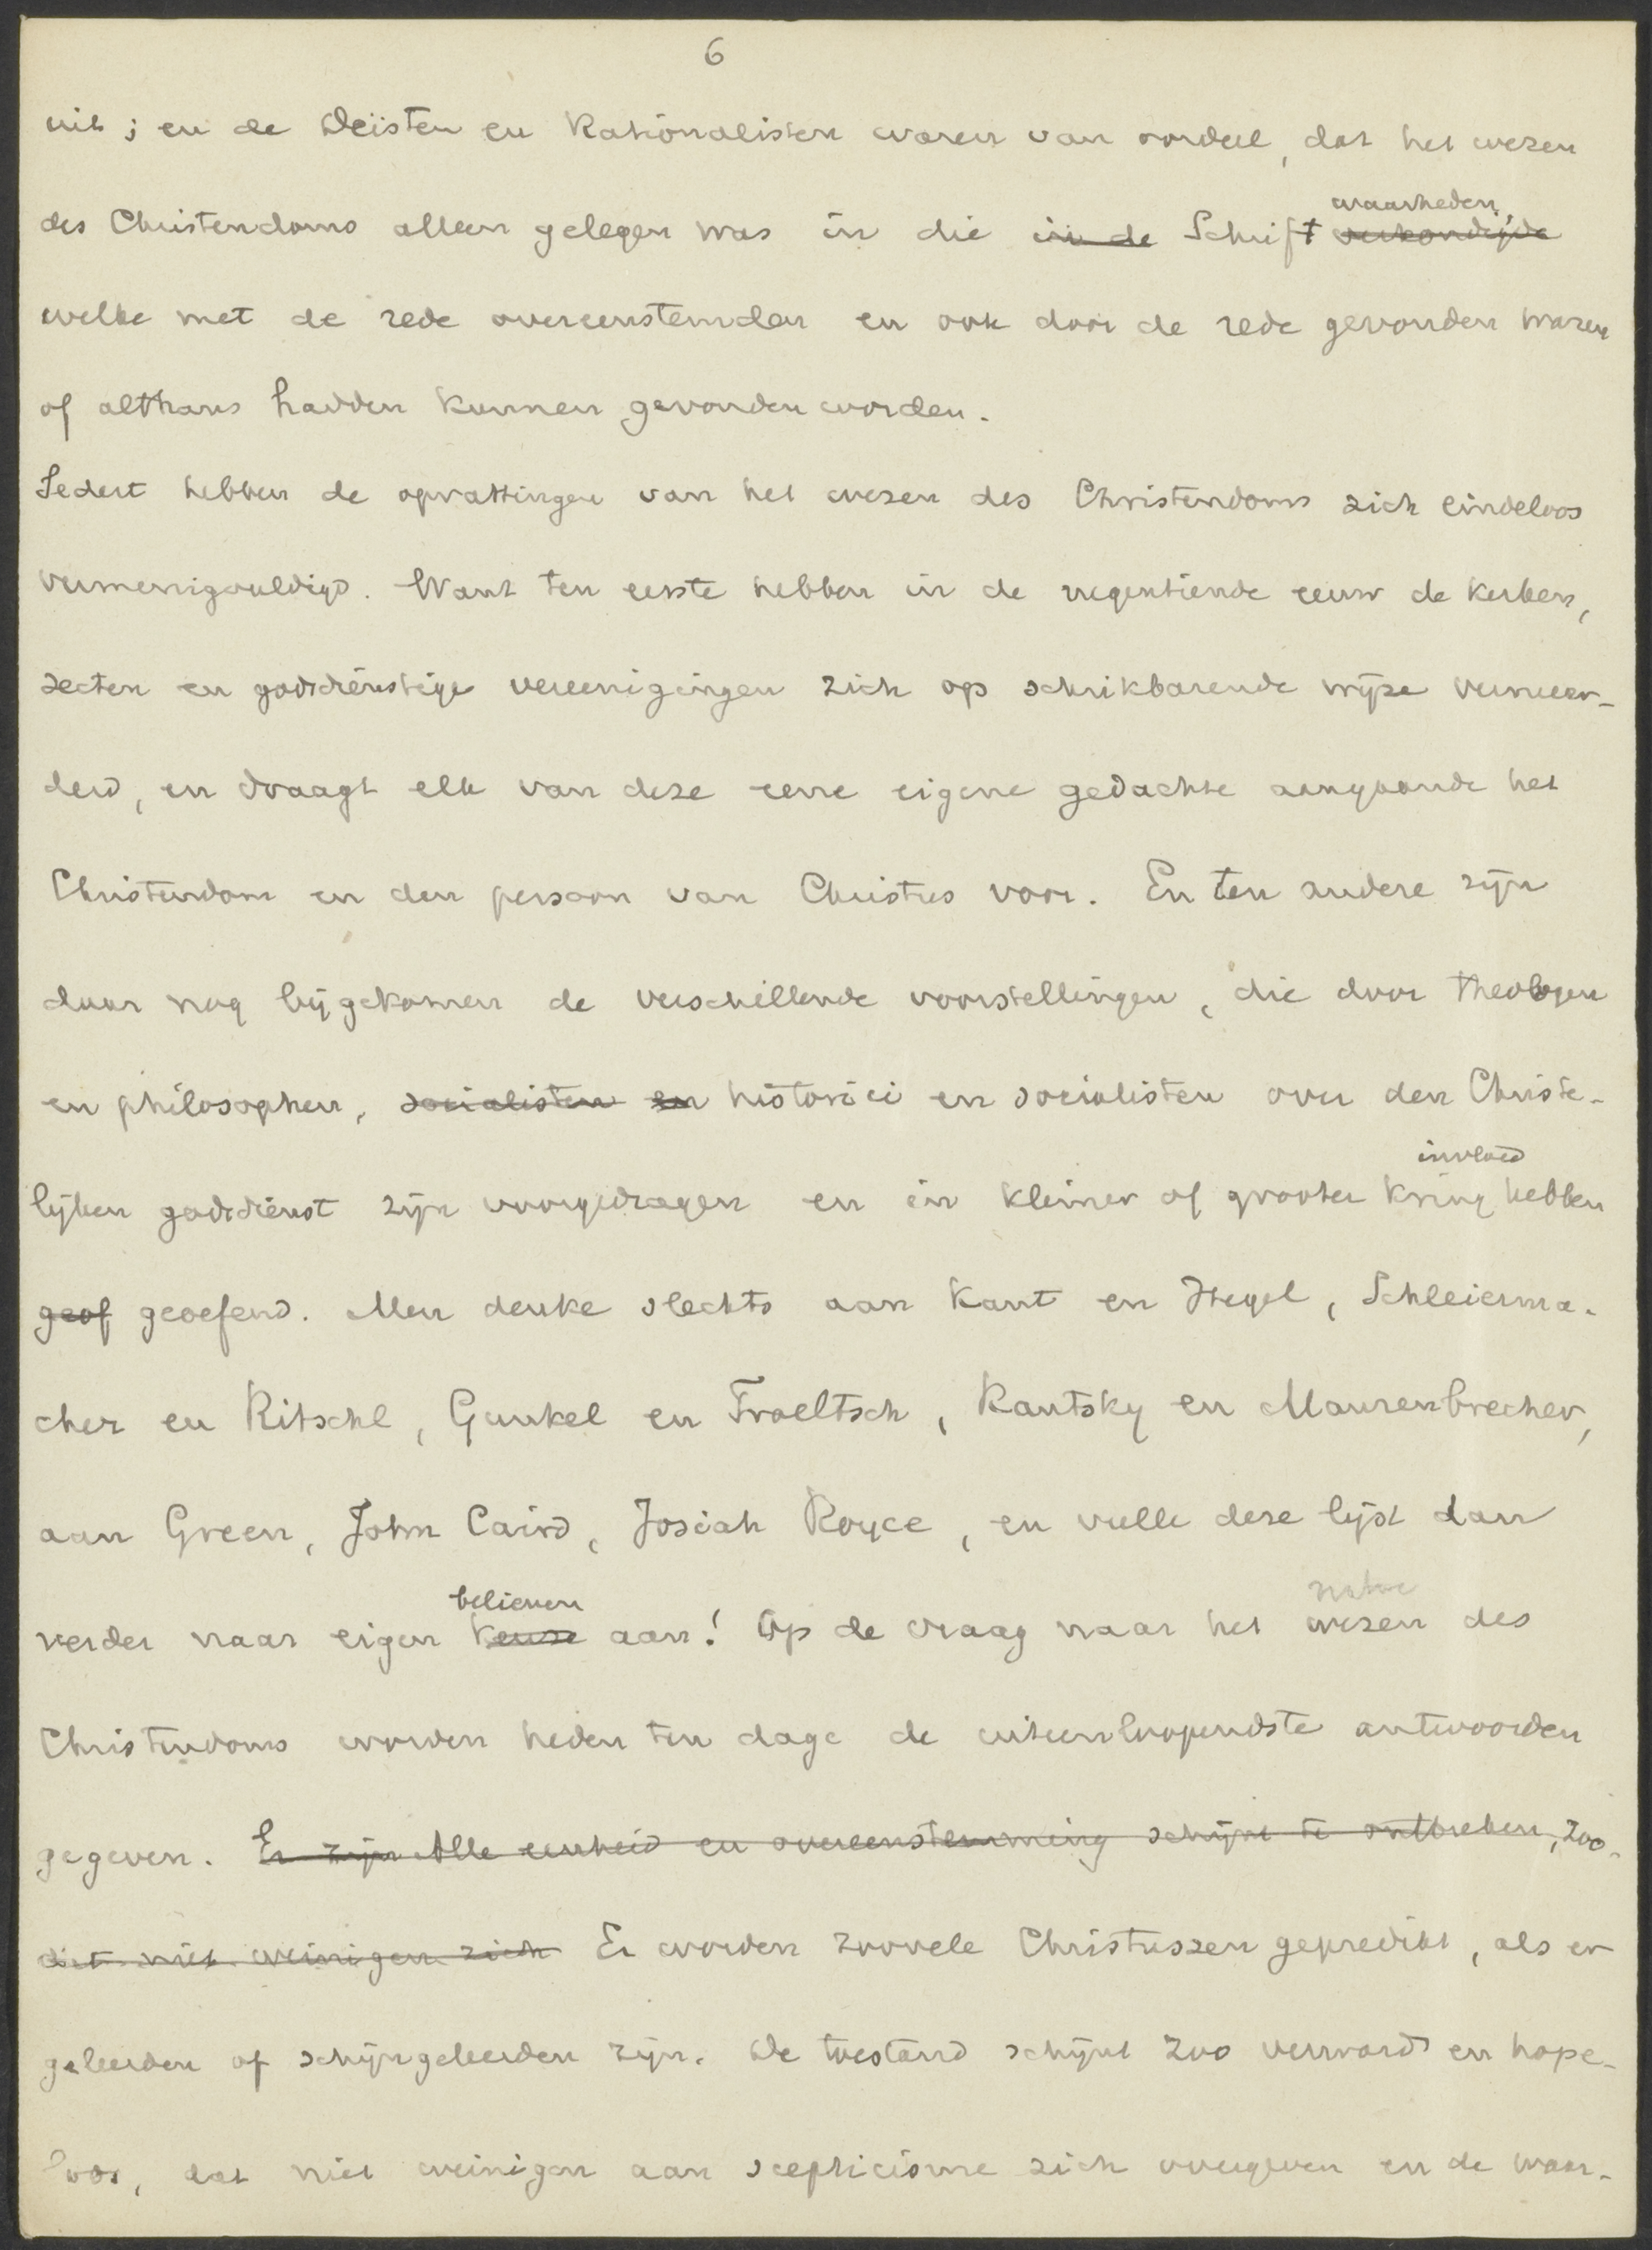 6
uit; en de Deïsten en Rationalisten waren van oordeel, dat het wezen
waarheden,
des Christendoms alleen gelegen was in die in de Schrift verkondigde
welke met de rede overeenstemden en ook door de rede gevonden waren
of althans hadden kunnen gevonden worden.
Sedert hebben de opvattingen van het wezen des Christendoms zich eindeloos
vermenigvuldigd. Want ten eerste hebben in de negentiende eeuw de kerken,
secten en godsdienstige vereenigingen zich op schrikbarende wijze vermeer-
derd, en draagt elk van deze eene eigene gedachte aangaande het
Christendom en den persoon van Christus voor. En ten andere zijn
daar nog bijgekomen de verschillende voorstellingen, die door theologen
en philosophen, socialisten en historici en socialisten over den Christe-
invloed
lijken godsdienst zijn voorgedragen en in kleiner of grooter kring hebben
geof geoefend. Men denke slechts aan Kant en Hegel, Schleierma-
cher en Ritschl, Gunkel en Troeltsch, Kautsky en Maurenbrecher,
aan Green, John Caird, Josiah Royce, en vulle deze lijst dan
believen natuur
verder naar eigen keuze aan! Op de vraag naar het wezen des
Christendoms worden heden ten dage de uiteenloopendste antwoorden
gegeven. Er zijn Alle eenheid en overeenstemming schijnt te ontbreken, zoo-
dat niet weinigen zich Er worden zoovele Christussen gepredikt, als er
geleerden of schijngeleerden zijn. De toestand schijnt zoo verward en hope-
loos, dat niet weinigen aan scepticisme zich overgeven en de waar-